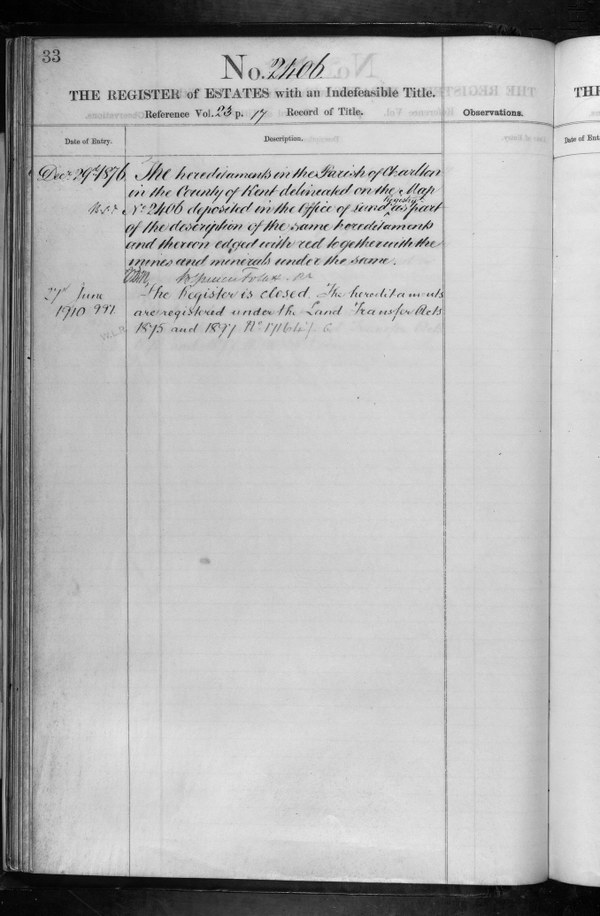 33
No. 2406
THE REGISTER of ESTATES with an Indefeasible Title.
Reference Vol. 23 p. 17 Record of Title.
Observations.
Date of Entry.
Description.
Decr 29th 1876
The hereditaments in the Parish of Charlton
in the County of Kent delineated on the Map
Registry
No 2406 deposited in the Office of Land as part
of the description of the same hereditaments
and thereon edged with red together with the
mines and minerals under the same.
27th June
The Register is closed. The hereditaments
1910 997
are registered under the Land Transfer Acts
1875 and 1897 No
THE
Date of Ent